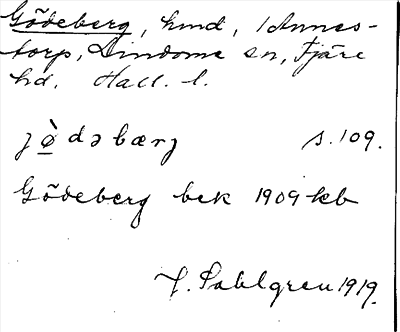 Gödeberg, hmd, i Annes-
torp, Lindome sn, Fjäre
hd. Hall. l.
jø̀dəbærj s. 109.
Gödeberg bek 1909 kb
J. Sahlgren 1919.